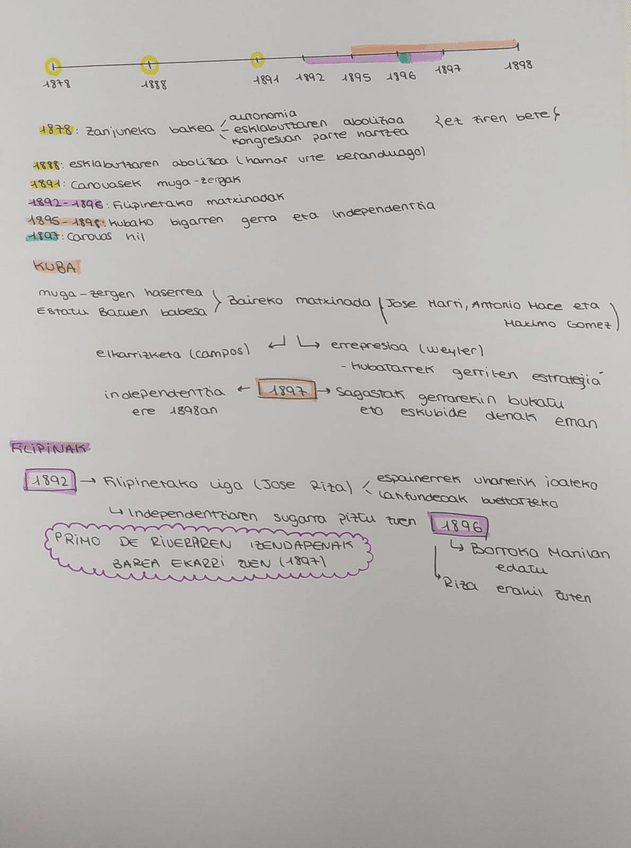 1878 1888 1891 1892 1895 1896 1897 1898
1878: Zanjuneko bakea autonomia
esklabutzaren abolizioa {ez ziren bete}
kongresuan parte hartzea
1888: esklabutzaren abolizioa (hamar urte beranduago)
1891: Canovasek muga-zergak
1892-1896: Filipinetako matxinadak
1895-1898: Kubako bigarren gerra eta independentzia
1897: Canovas hil
KUBA
muga-zergen haserrea
Estatu Batuen babesa
Baireko matxinada (Jose Marti, Antonio Mace eta
Maximo Gomez)
elkarrizketa (Campos) errepresioa (Weyler)
- Kubatarrek gerrilen estrategia
independentzia ← 1897 → Sagastak gerrarekin bukatu
ere 1898an eta eskubide denak eman
FILIPINAK
1892 → Filipinetako Liga (Jose Riza) espainierrek uharterik joateko
latifundioak banatzeko
↳ Independentziaren sugarra piztu zuen 1896
PRIMO DE RIVERAREN IZENDAPENAK
BAREA EKARRI ZUEN (1897)
↳ Borroka Manilan
edatu
Riza erahil zuten